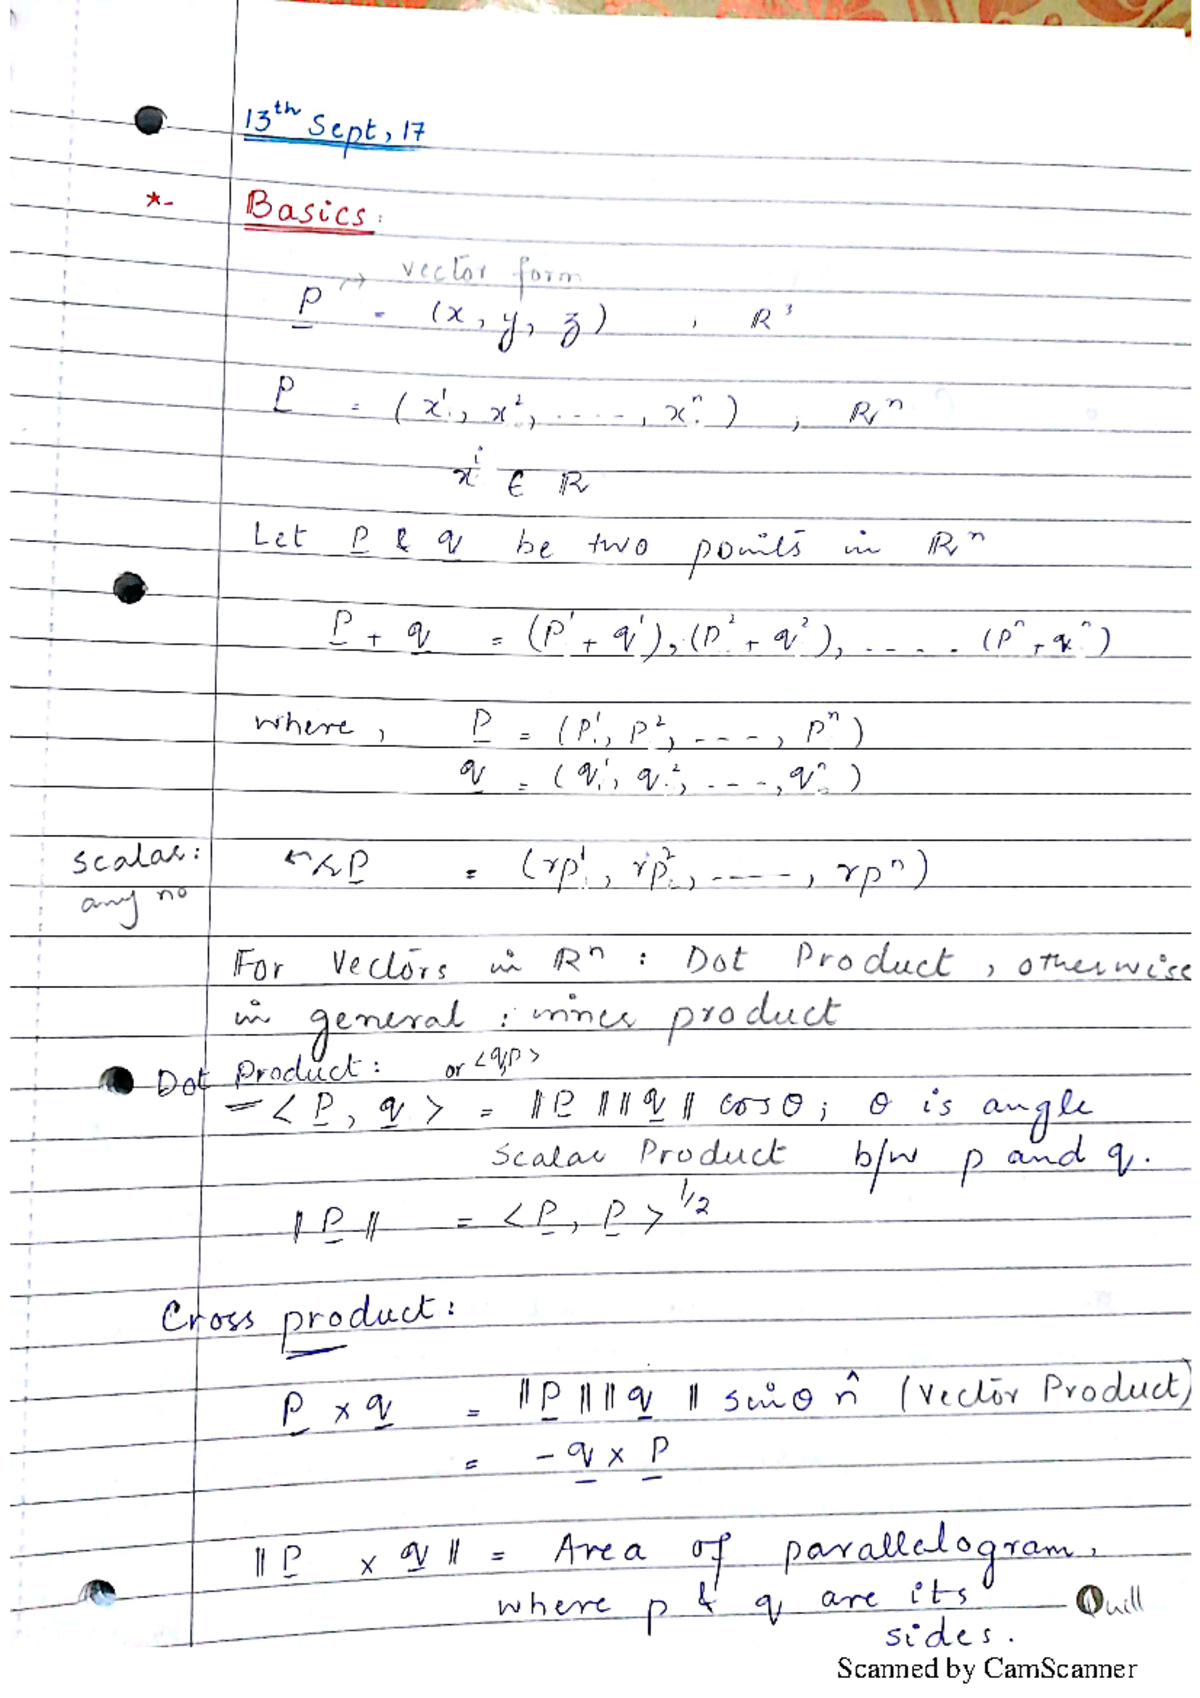 13th Sept, 17
*- Basics:
→ vector form
p = (x, y, z) , ℝ³
p = (x¹, x², ....., xⁿ) ; ℝⁿ
xⁱ ∈ ℝ
Let p & q be two points in ℝⁿ
p + q = (p¹ + q¹), (p² + q²), ..... (pⁿ + qⁿ)
where, p = (p¹, p², ----, pⁿ)
q = (q¹, q², ----, qⁿ)
Scalar: p = (rp¹, rp², -----, rpⁿ)
any no
For Vectors in ℝⁿ : Dot Product, otherwise
in general : inner product
Dot Product: or <q,p>
= <p, q> = ||p|| ||q|| cosθ ; θ is angle
Scalar Product b/w p and q.
||p|| = <p, p>^1/2
Cross product:
p × q = ||p|| ||q|| sinθ n̂ (Vector Product)
= - q × p
||p × q|| = Area of parallelogram,
where p & q are its
sides.
Quill
Scanned by CamScanner